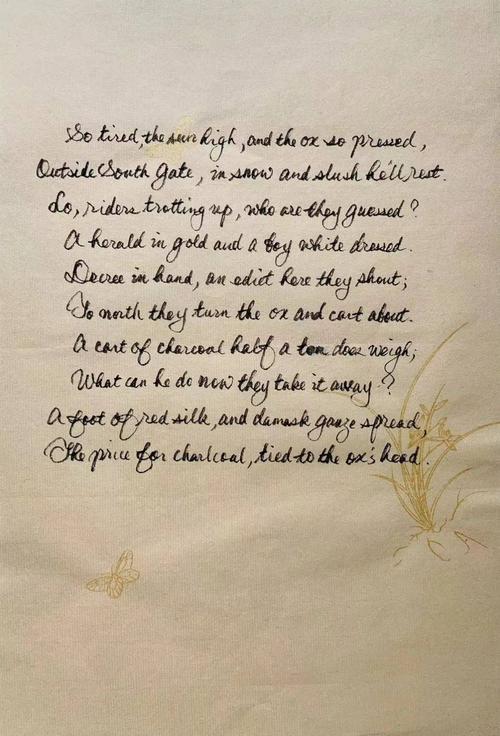 So tired, the sun high, and the ox so pressed,
Outside South Gate, in snow and slush he'll rest.
Lo, riders trotting up, who are they guessed?
A herald in gold and a boy white dressed.
Decree in hand, an edict here they shout;
To north they turn the ox and cart about.
A cart of charcoal half a ton does weigh;
What can he do now they take it away?
A foot of red silk, and damask gauze spread,
The price for charlcoal, tied to the ox's head.